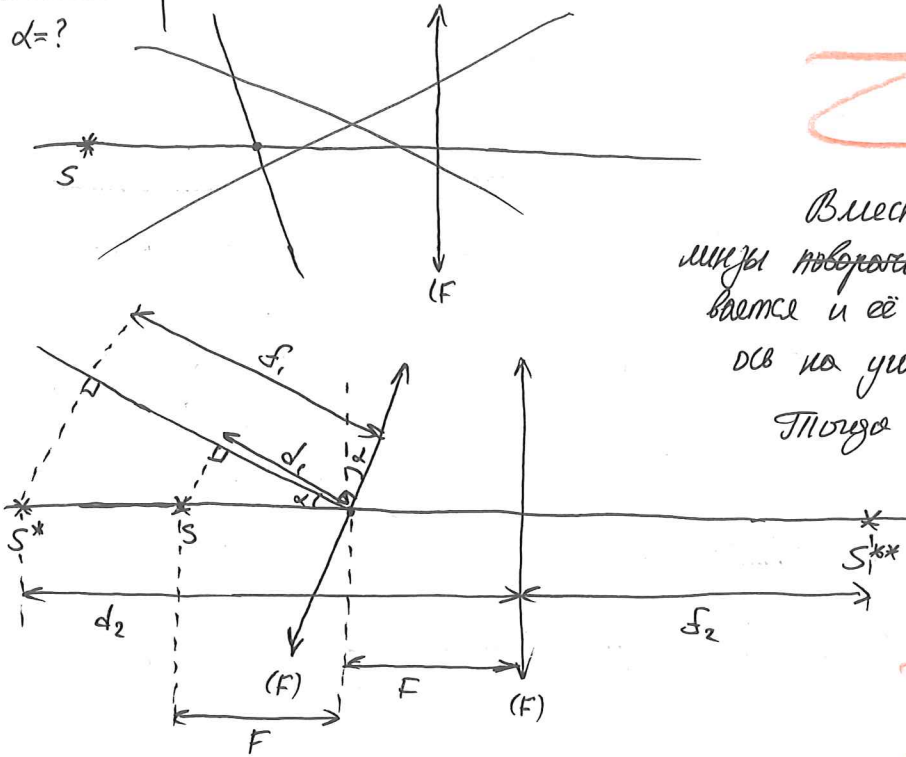 α=?
S
(F
Вмест
линзы поворачи
вается и её
ось на уг
Тогда
f₁
d₁
α
α
S*
S
S₁**
d₂
f₂
(F)
F
(F)
F